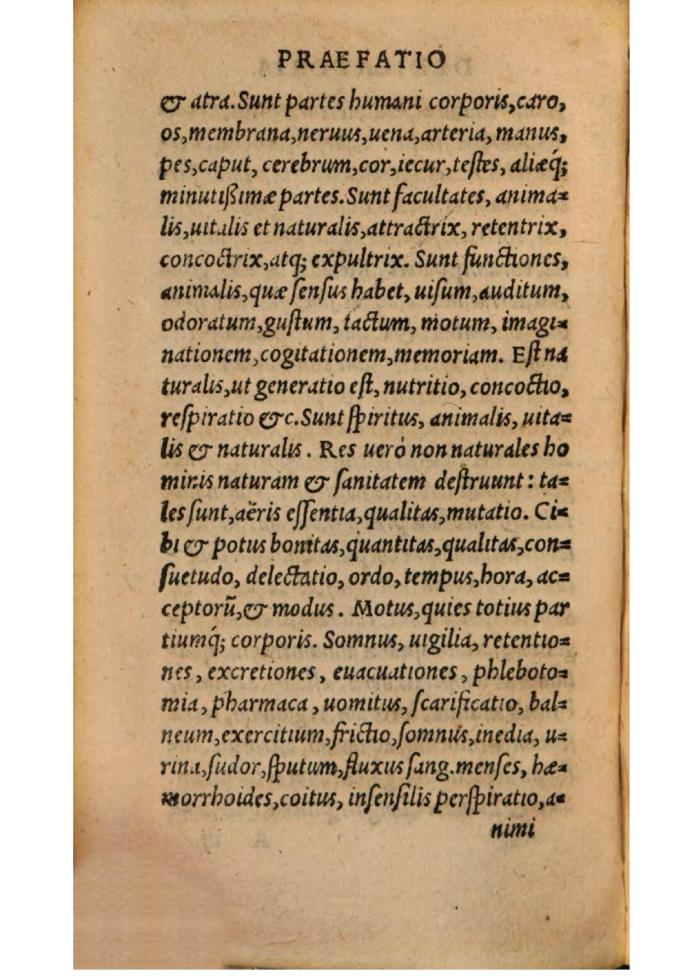 PRAEFATIO
& atra. Sunt partes humani corporis, caro,
os, membrana, neruus, uena, arteria, manus,
pes, caput, cerebrum, cor, iecur, testes, aliæq́;
minutißimæ partes. Sunt facultates, anima=
lis, uitalis et naturalis, attractrix, retentrix,
concoctrix, atq; expultrix. Sunt functiones,
animalis, quæ sensus habet, uisum, auditum,
odoratum, gustum, tactum, motum, imagi=
nationem, cogitationem, memoriam. Est na
turalis, ut generatio est, nutritio, concoctio,
respiratio &c. Sunt spiritus, animalis, uita=
lis & naturalis. Res uerò non naturales ho
minis naturam & sanitatem destruunt: ta=
les sunt, aëris essentia, qualitas, mutatio. Ci=
bi & potus bonitas, quantitas, qualitas, con=
suetudo, delectatio, ordo, tempus, hora, ac=
ceptorũ, & modus. Motus, quies totius par
tiumq́; corporis. Somnus, uigilia, retentio=
nes, excretiones, euacuationes, phleboto=
mia, pharmaca, uomitus, scarificatio, bal=
neum, exercitium, frictio, somnus, inedia, u=
rina, sudor, sputum, fluxus sang. menses, hæ=
morrhoides, coitus, insensilis perspiratio, a=
nimi